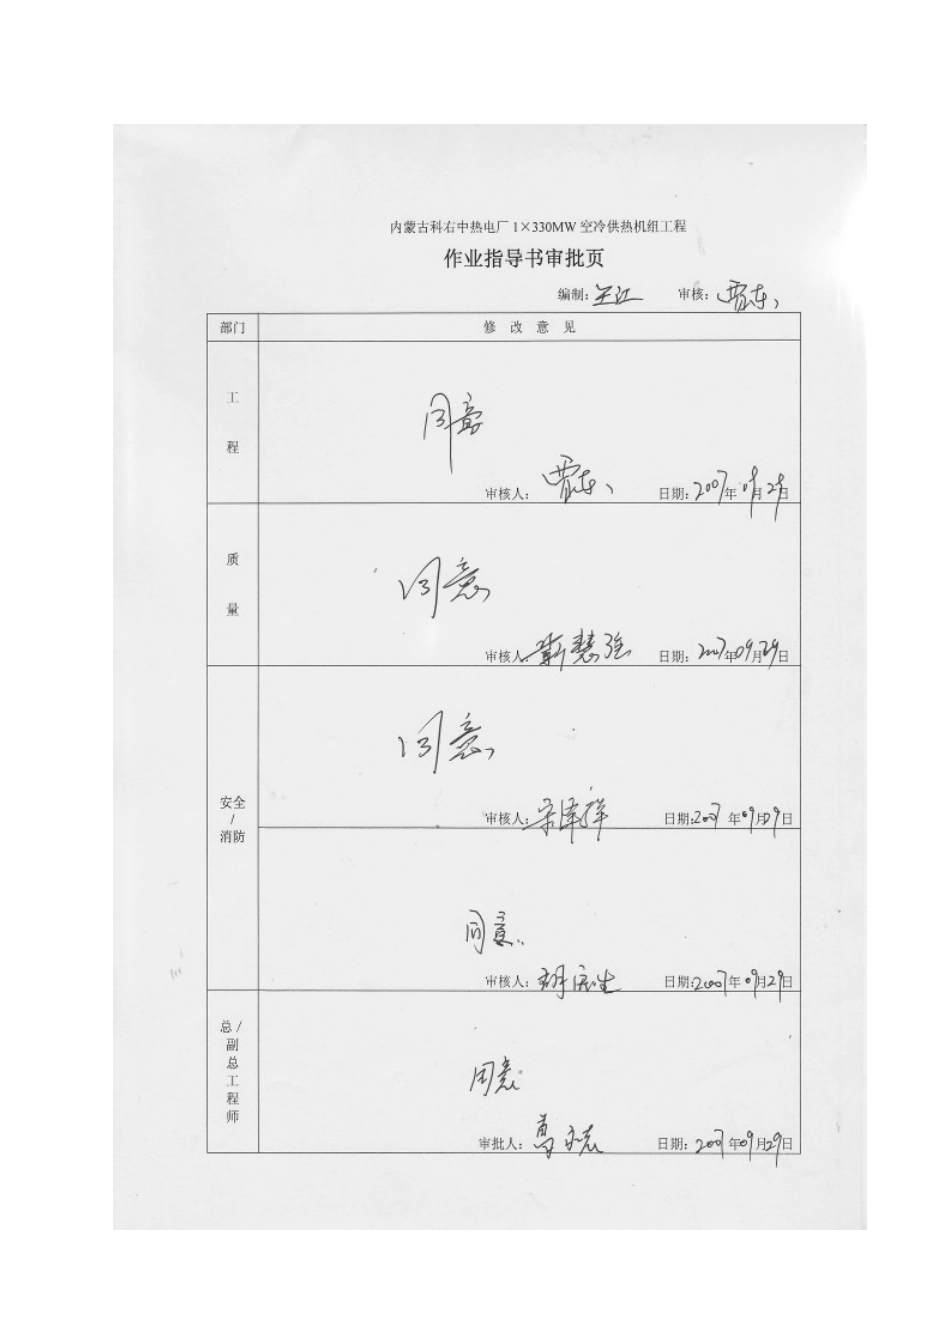 内蒙古科右中热电厂1×330MW空冷供热机组工程
作业指导书审批页
编制: 审核: 贾东
部门 修 改 意 见
工
程
同意
审核人: 贾东 日期: 2007年09月29日
质
量
同意
审核人: 靳慧强 日期: 2007年09月29日
安全
/
消防
同意
审核人: 宋泽祥 日期: 2007年09月29日
同意
审核人: 日期: 2007年09月29日
总/
副
总
工
程
师
同意
审批人: 日期: 2007年09月29日